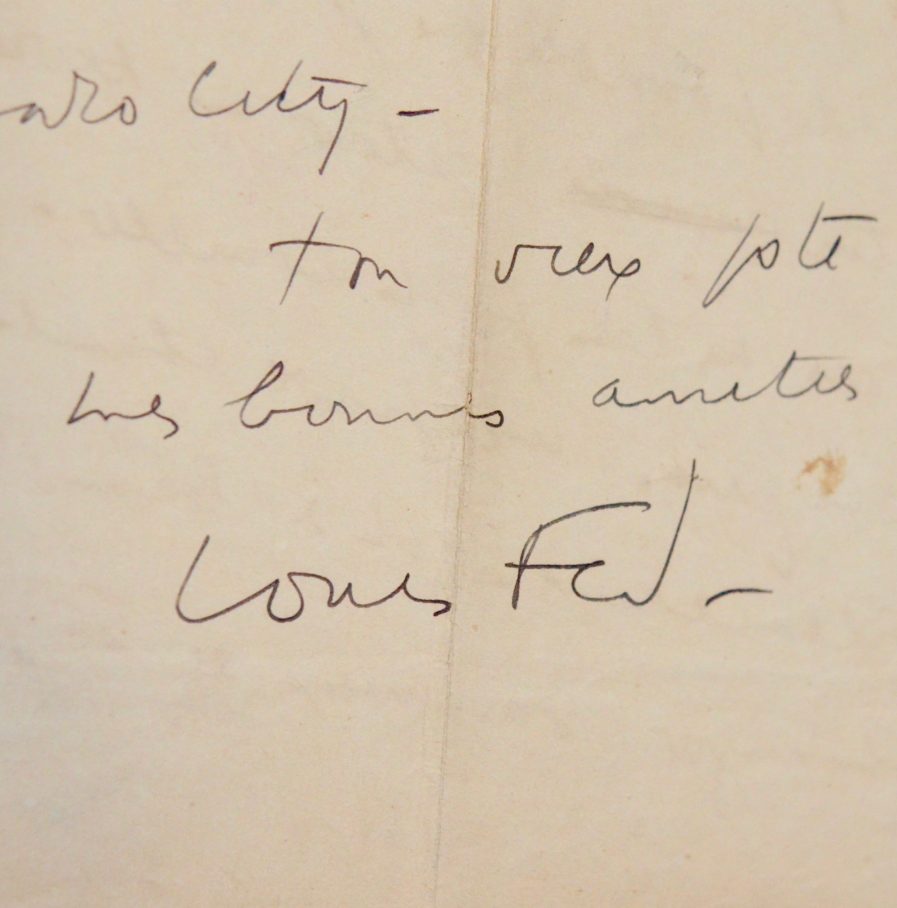 City –
ton vieux pote
mes bonnes amities
Louis Ferd –